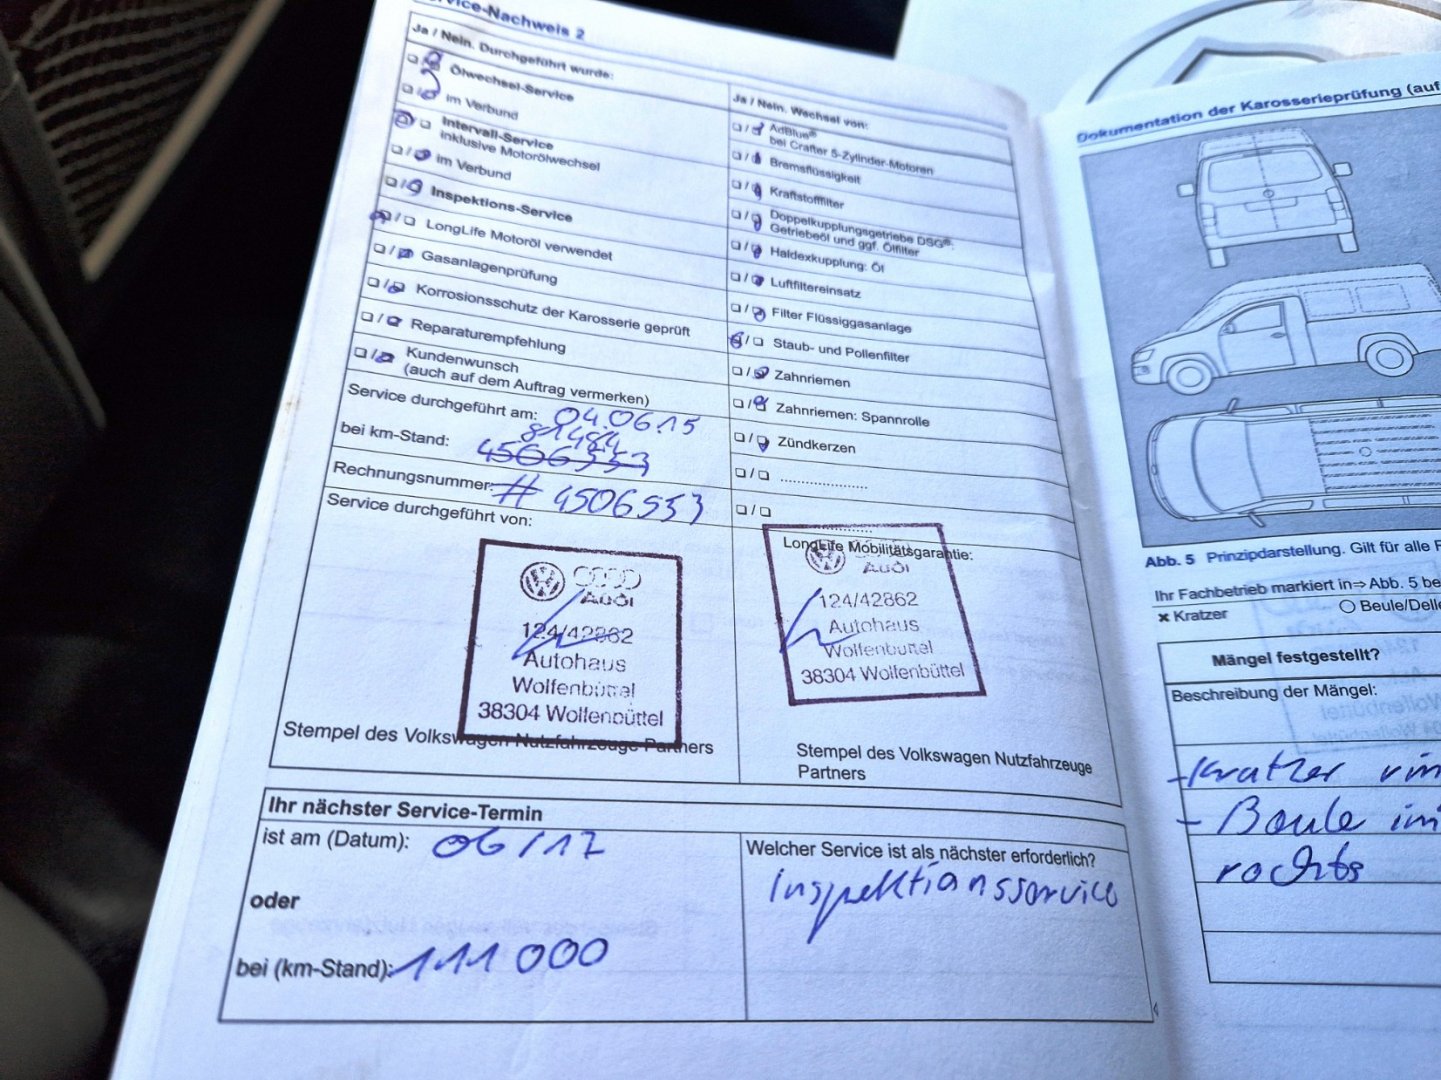 Service-Nachweis 2
Ja / Nein. Durchgeführt wurde:
Ölwechsel-Service
im Verbund
Intervall-Service
inklusive Motorölwechsel
im Verbund
Inspektions-Service
LongLife Motoröl verwendet
Gasanlagenprüfung
Korrosionsschutz der Karosserie geprüft
Reparaturempfehlung
Kundenwunsch
(auch auf dem Auftrag vermerken)
Service durchgeführt am: 04.06.15
81484
bei km-Stand: 4506553
Rechnungsnummer: # 4506553
Service durchgeführt von:
Audi
124/42862
Autohaus
Wolfenbüttel
38304 Wolfenbüttel
Stempel des Volkswagen Nutzfahrzeuge Partners
Ja / Nein. Wechsel von:
AdBlue®
bei Crafter 5-Zylinder-Motoren
Bremsflüssigkeit
Kraftstofffilter
Doppelkupplungsgetriebe DSG®:
Getriebeöl und ggf. Ölfilter
Haldexkupplung: Öl
Luftfiltereinsatz
Filter Flüssiggasanlage
Staub- und Pollenfilter
Zahnriemen
Zahnriemen: Spannrolle
Zündkerzen
LongLife Mobilitätsgarantie:
Audi
124/42862
Autohaus
Wolfenbüttel
38304 Wolfenbüttel
Stempel des Volkswagen Nutzfahrzeuge
Partners
Ihr nächster Service-Termin
ist am (Datum): 06/17
oder
bei (km-Stand): 111 000
Welcher Service ist als nächster erforderlich?
Inspektionsservice
Dokumentation der Karosserieprüfung (auf
Abb. 5 Prinzipdarstellung. Gilt für alle F
Ihr Fachbetrieb markiert in⇒Abb. 5 be
× Kratzer ○ Beule/Delle
Mängel festgestellt?
Beschreibung der Mängel:
- Kratzer
- Beule
rechts